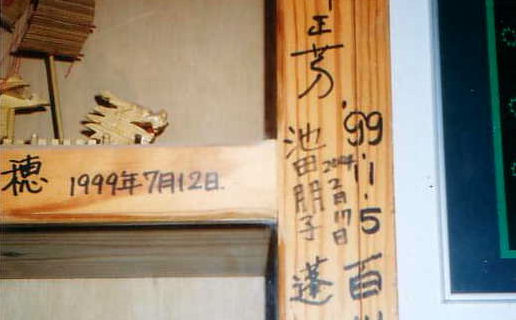 穂 1999年7月12日.
正芳
'99.11.5 百
池田朋子
2004年2月17日
蓬